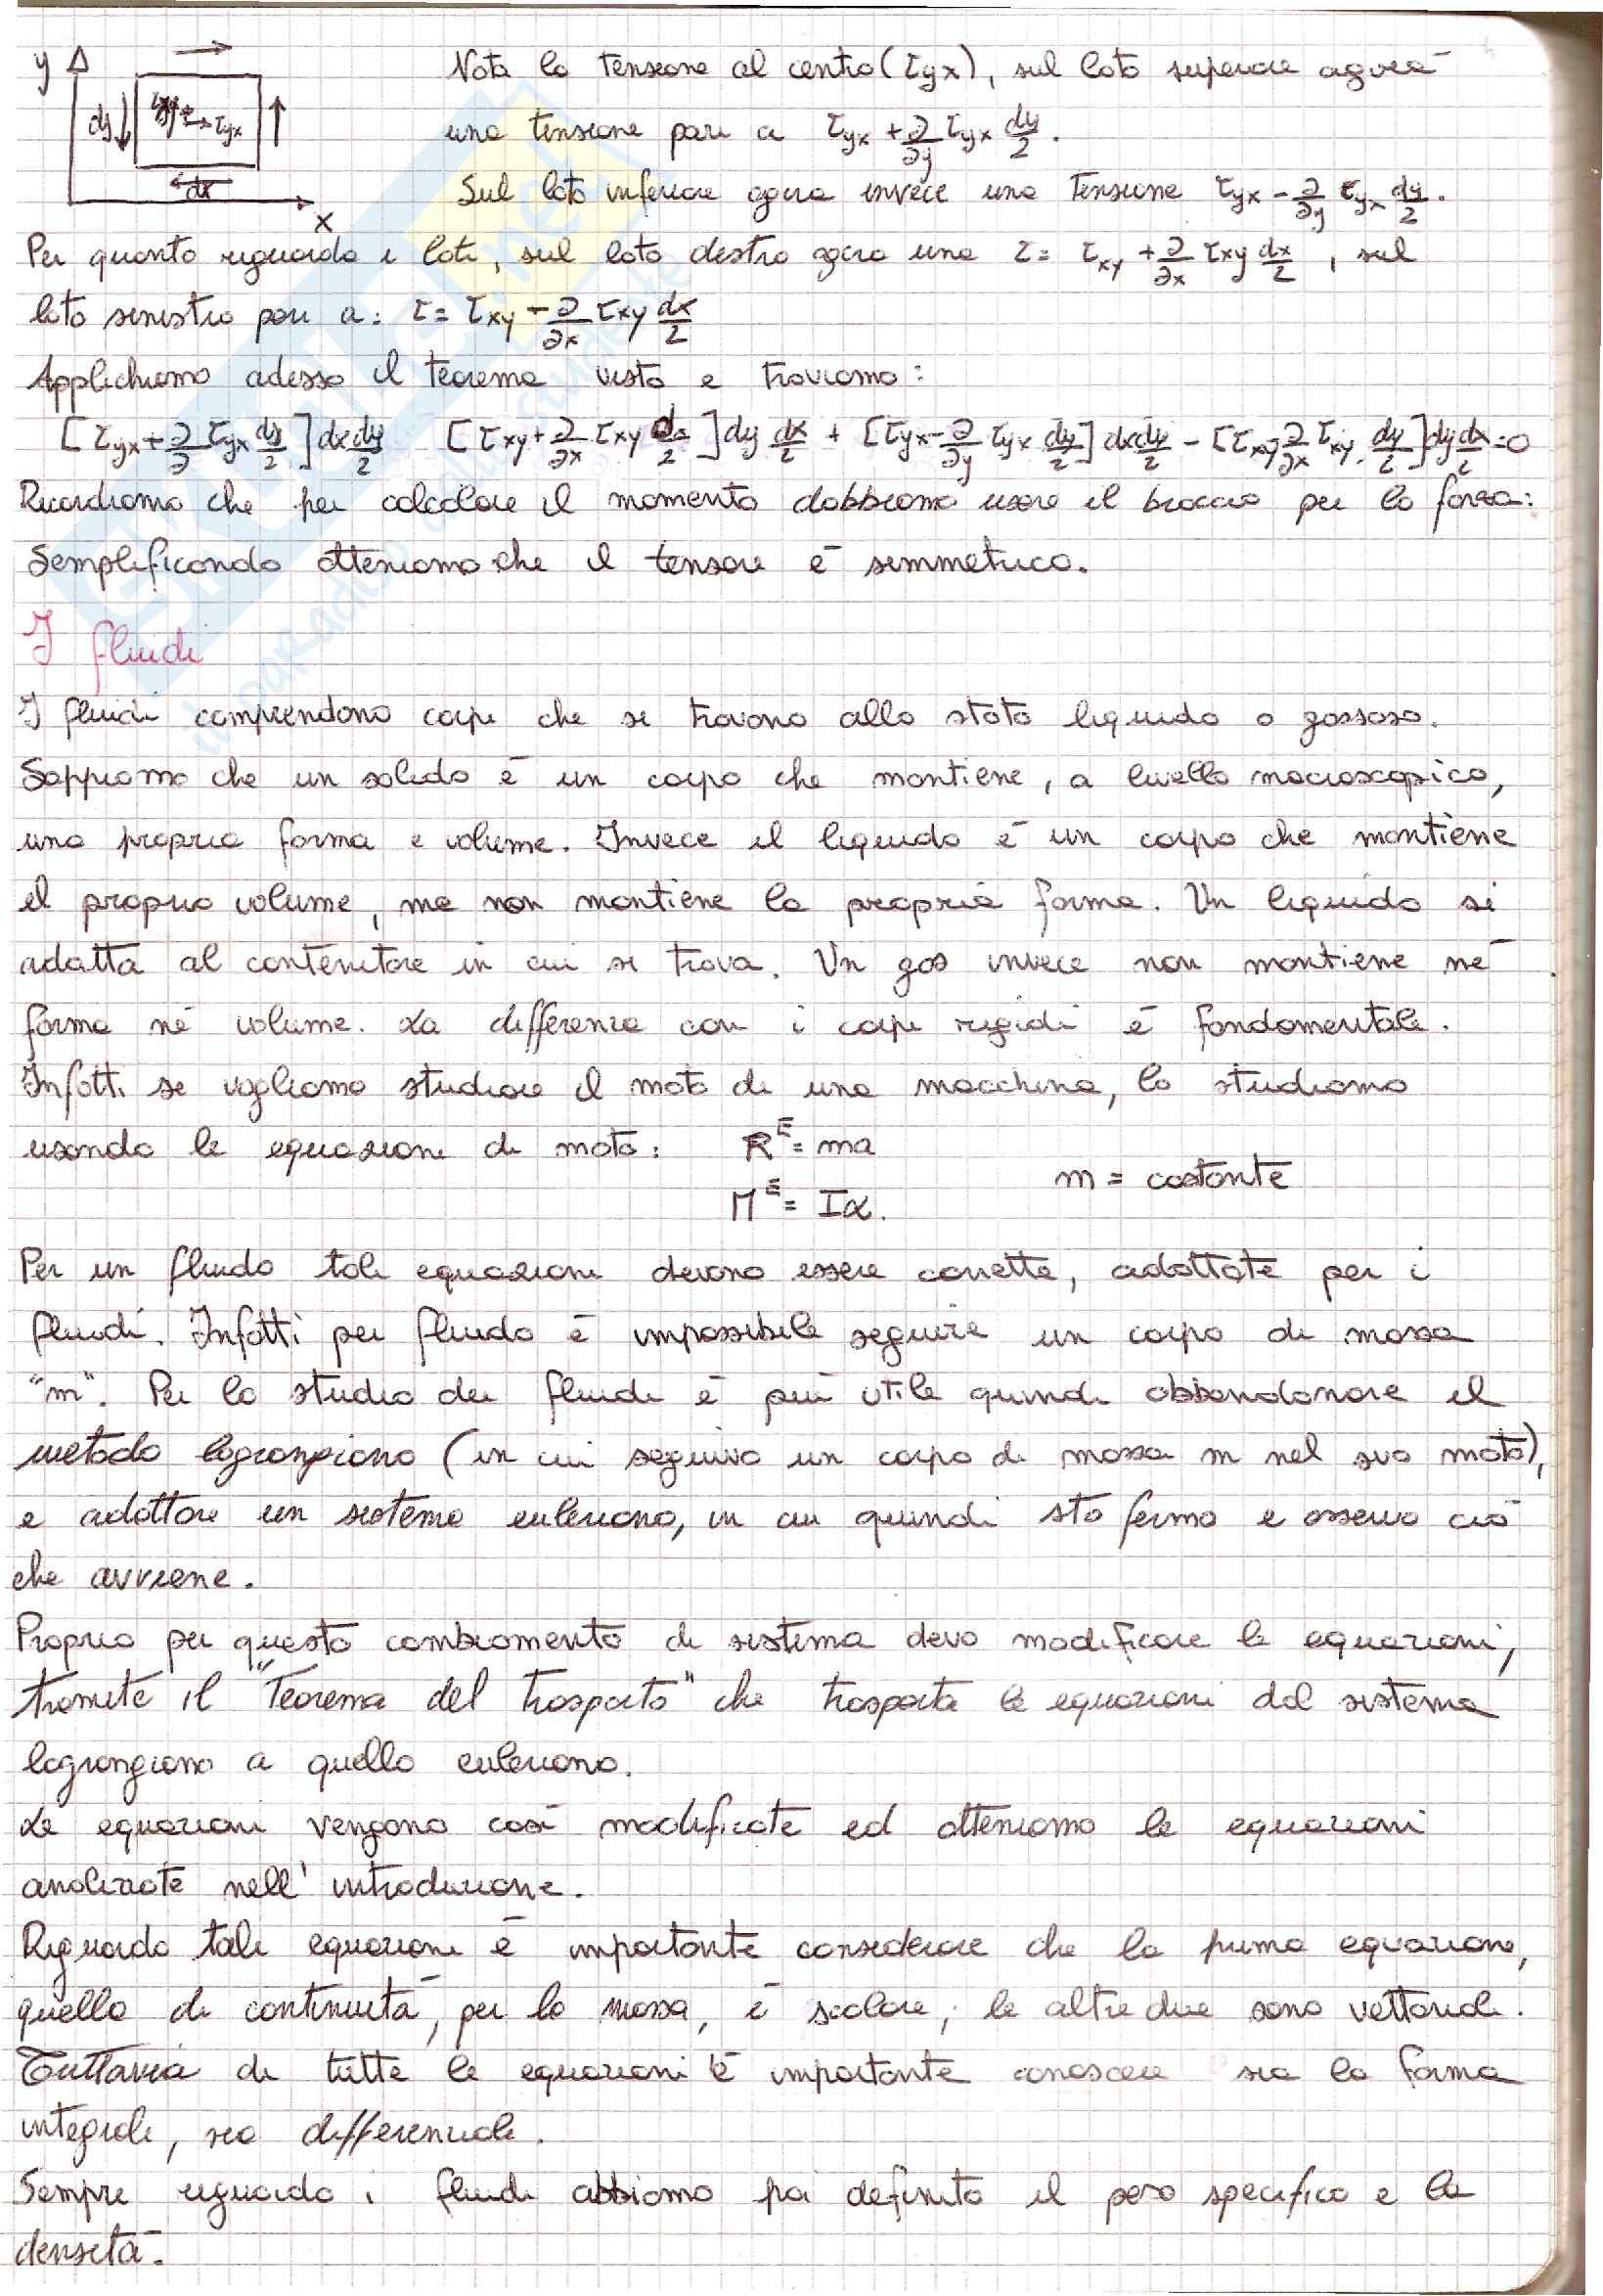 y
dy
τyx
dx
x
Nota la tensione al centro (τyx), sul lato superiore agirà
una tensione pari a τyx + ∂/∂y τyx dy/2.
Sul lato inferiore agirà invece una tensione τyx - ∂/∂y τyx dy/2.
Per quanto riguarda i lati, sul lato destro agirà una τ = τxy + ∂/∂x τxy dx/2, sul
lato sinistro pari a: τ = τxy - ∂/∂x τxy dx/2
Applichiamo adesso il teorema visto e troviamo:
[τyx + ∂/∂ τyx dy/2] dx dy/2 [τxy + ∂/∂x τxy /2] dy dx/2 + [τyx - ∂/∂y τyx dy/2] dx dy/2 - [τxy ∂/∂x τxy dy/2] dy dx/2 = 0
Ricordiamo che per calcolare il momento dobbiamo usare il braccio per la forza:
Semplificando otteniamo che il tensore è simmetrico.
I fluidi
I fluidi comprendono corpi che si trovano allo stato liquido o gassoso.
Sappiamo che un solido è un corpo che mantiene, a livello macroscopico,
una propria forma e volume. Invece il liquido è un corpo che mantiene
il proprio volume, ma non mantiene la propria forma. Un liquido si
adatta al contenitore in cui si trova. Un gas invece non mantiene né
forma né volume. La differenza con i corpi rigidi è fondamentale.
Infatti se vogliamo studiare il moto di una macchina, lo studiamo
usando le equazioni di moto: R^E = ma
m = costante
M^E = Iα.
Per un fluido tali equazioni devono essere corrette, adattate per i
fluidi. Infatti per fluido è impossibile seguire un corpo di massa
"m". Per lo studio dei fluidi è più utile quindi abbandonare il
metodo lagrangiano (in cui seguivo un corpo di massa m nel suo moto),
e adottare un sistema euleriano, in cui quindi sto fermo e osservo ciò
che avviene.
Proprio per questo cambiamento di sistema devo modificare le equazioni,
tramite il "Teorema del trasporto" che trasporta le equazioni dal sistema
lagrangiano a quello euleriano.
Le equazioni vengono così modificate ed otteniamo le equazioni
analizzate nell'introduzione.
Riguardo tali equazioni è importante considerare che la prima equazione,
quella di continuità, per la massa, è scalare, le altre due sono vettoriali.
Tuttavia di tutte le equazioni è importante conoscere sia la forma
integrale, sia differenziale.
Sempre riguardo i fluidi abbiamo poi definito il peso specifico e la
densità.